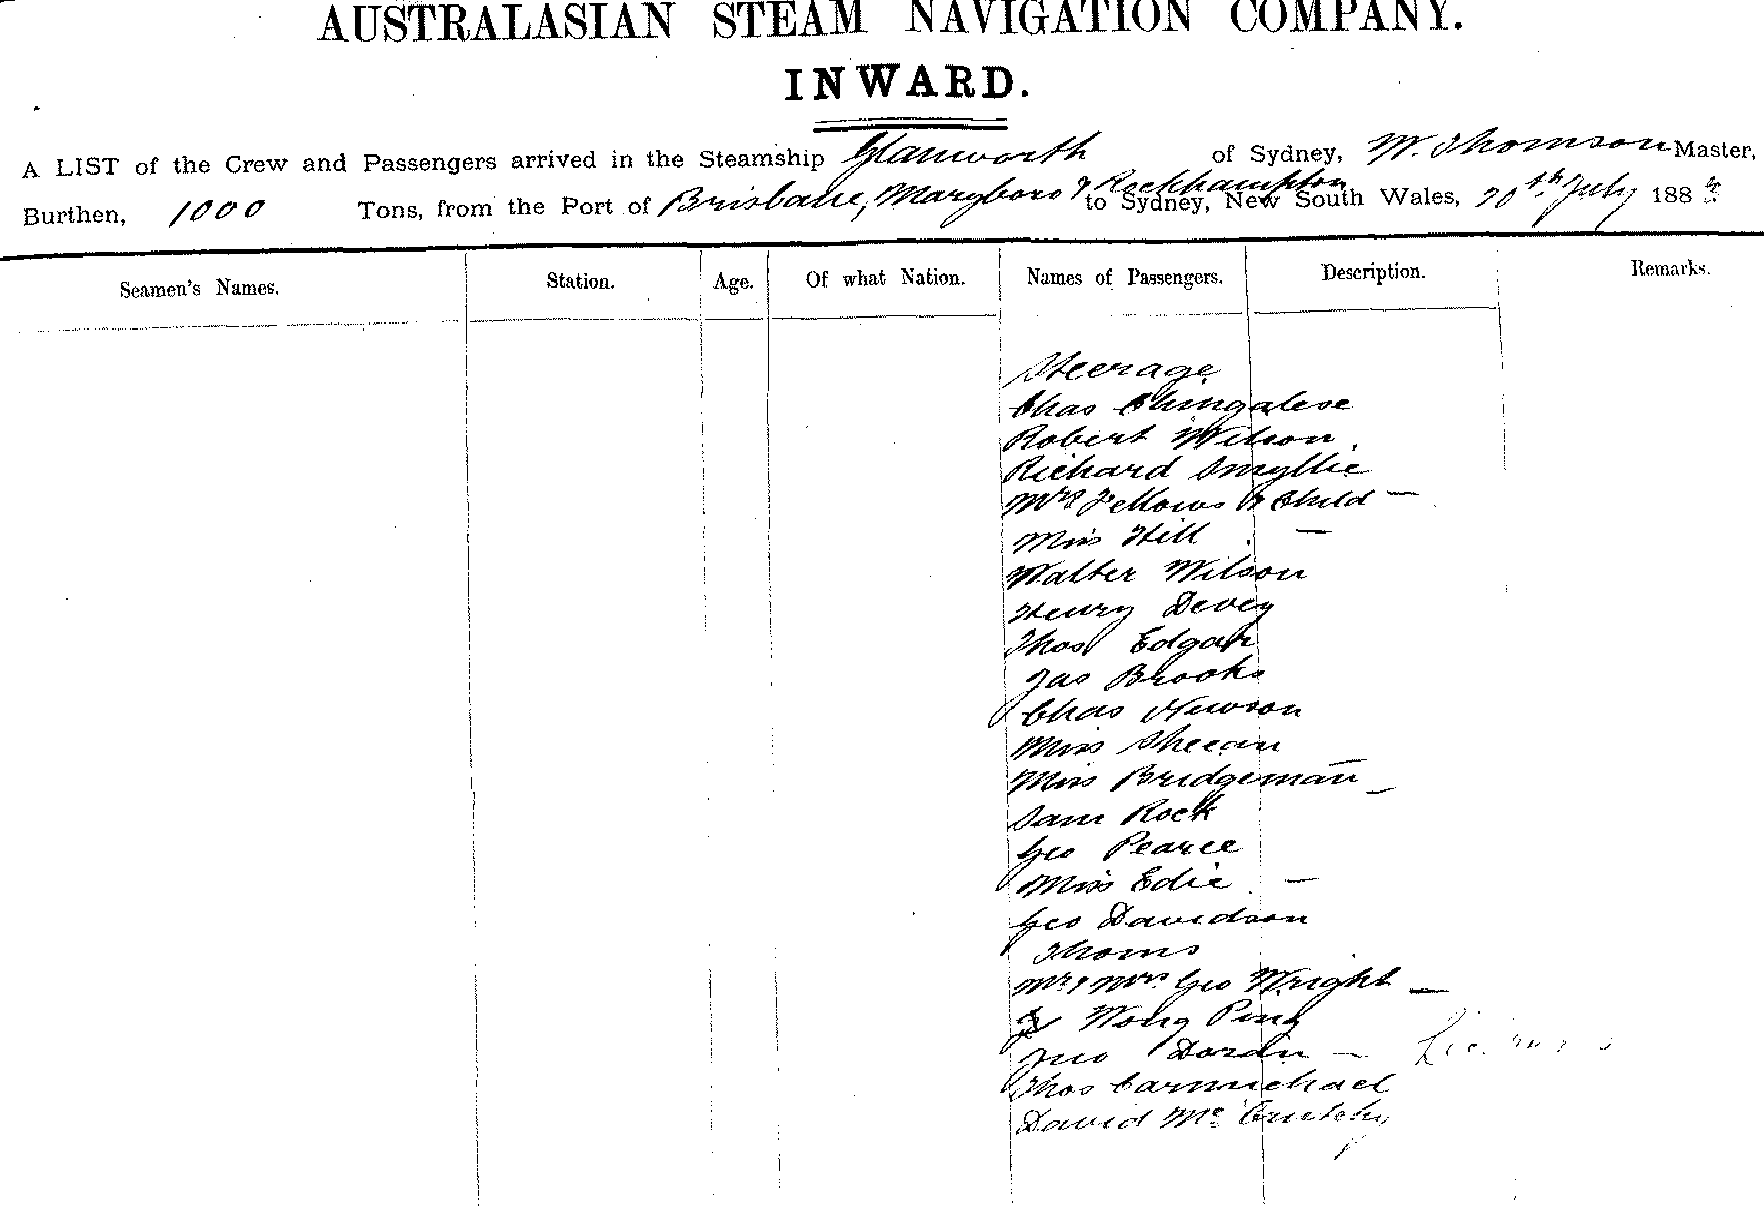 AUSTRALASIAN STEAM NAVIGATION COMPANY.
INWARD.
A LIST of the Crew and Passengers arrived in the Steamship Glanworth of Sydney, W. Thomson Master,
Burthen, 1000 Tons, from the Port of Brisbane, Maryboro & Rockhampton to Sydney, New South Wales, 20th July 188
Seamen's Names. Station. Age. Of what Nation. Names of Passengers. Description. Remarks.
Steerage
Chas Chingalese
Robert Wilson
Richard Smyllie
Mrs Fellows & Child —
Miss Hill —
Walter Wilson
Henry Devey
Thos Edgar
Jas Brooks
Chas Newson
Miss Sheean
Miss Bridgeman —
Sam Rock
Geo Pearce
Miss Edie —
Geo Davidson
Thoms
Mr & Mrs Geo Wright —
Wong Ping
Jno —
Thos Carmichael
David Mc